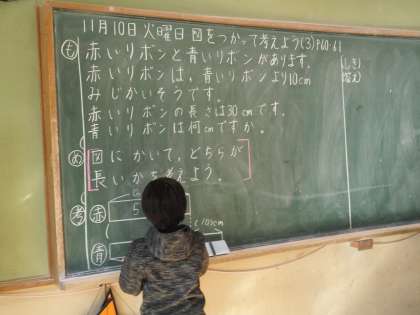 11月10日 火曜日 図をつかって考えよう(3)P60.61
も 赤いリボンと青いリボンがあります。
赤いリボンは、青いリボンより10cm
みじかいそうです。
赤いリボンの長さは30cmです。
青いリボンは何cmですか。
(しき)
(答え)
め 図にかいて、どちらが
長いかを考えよう。
考 赤
10cm
青